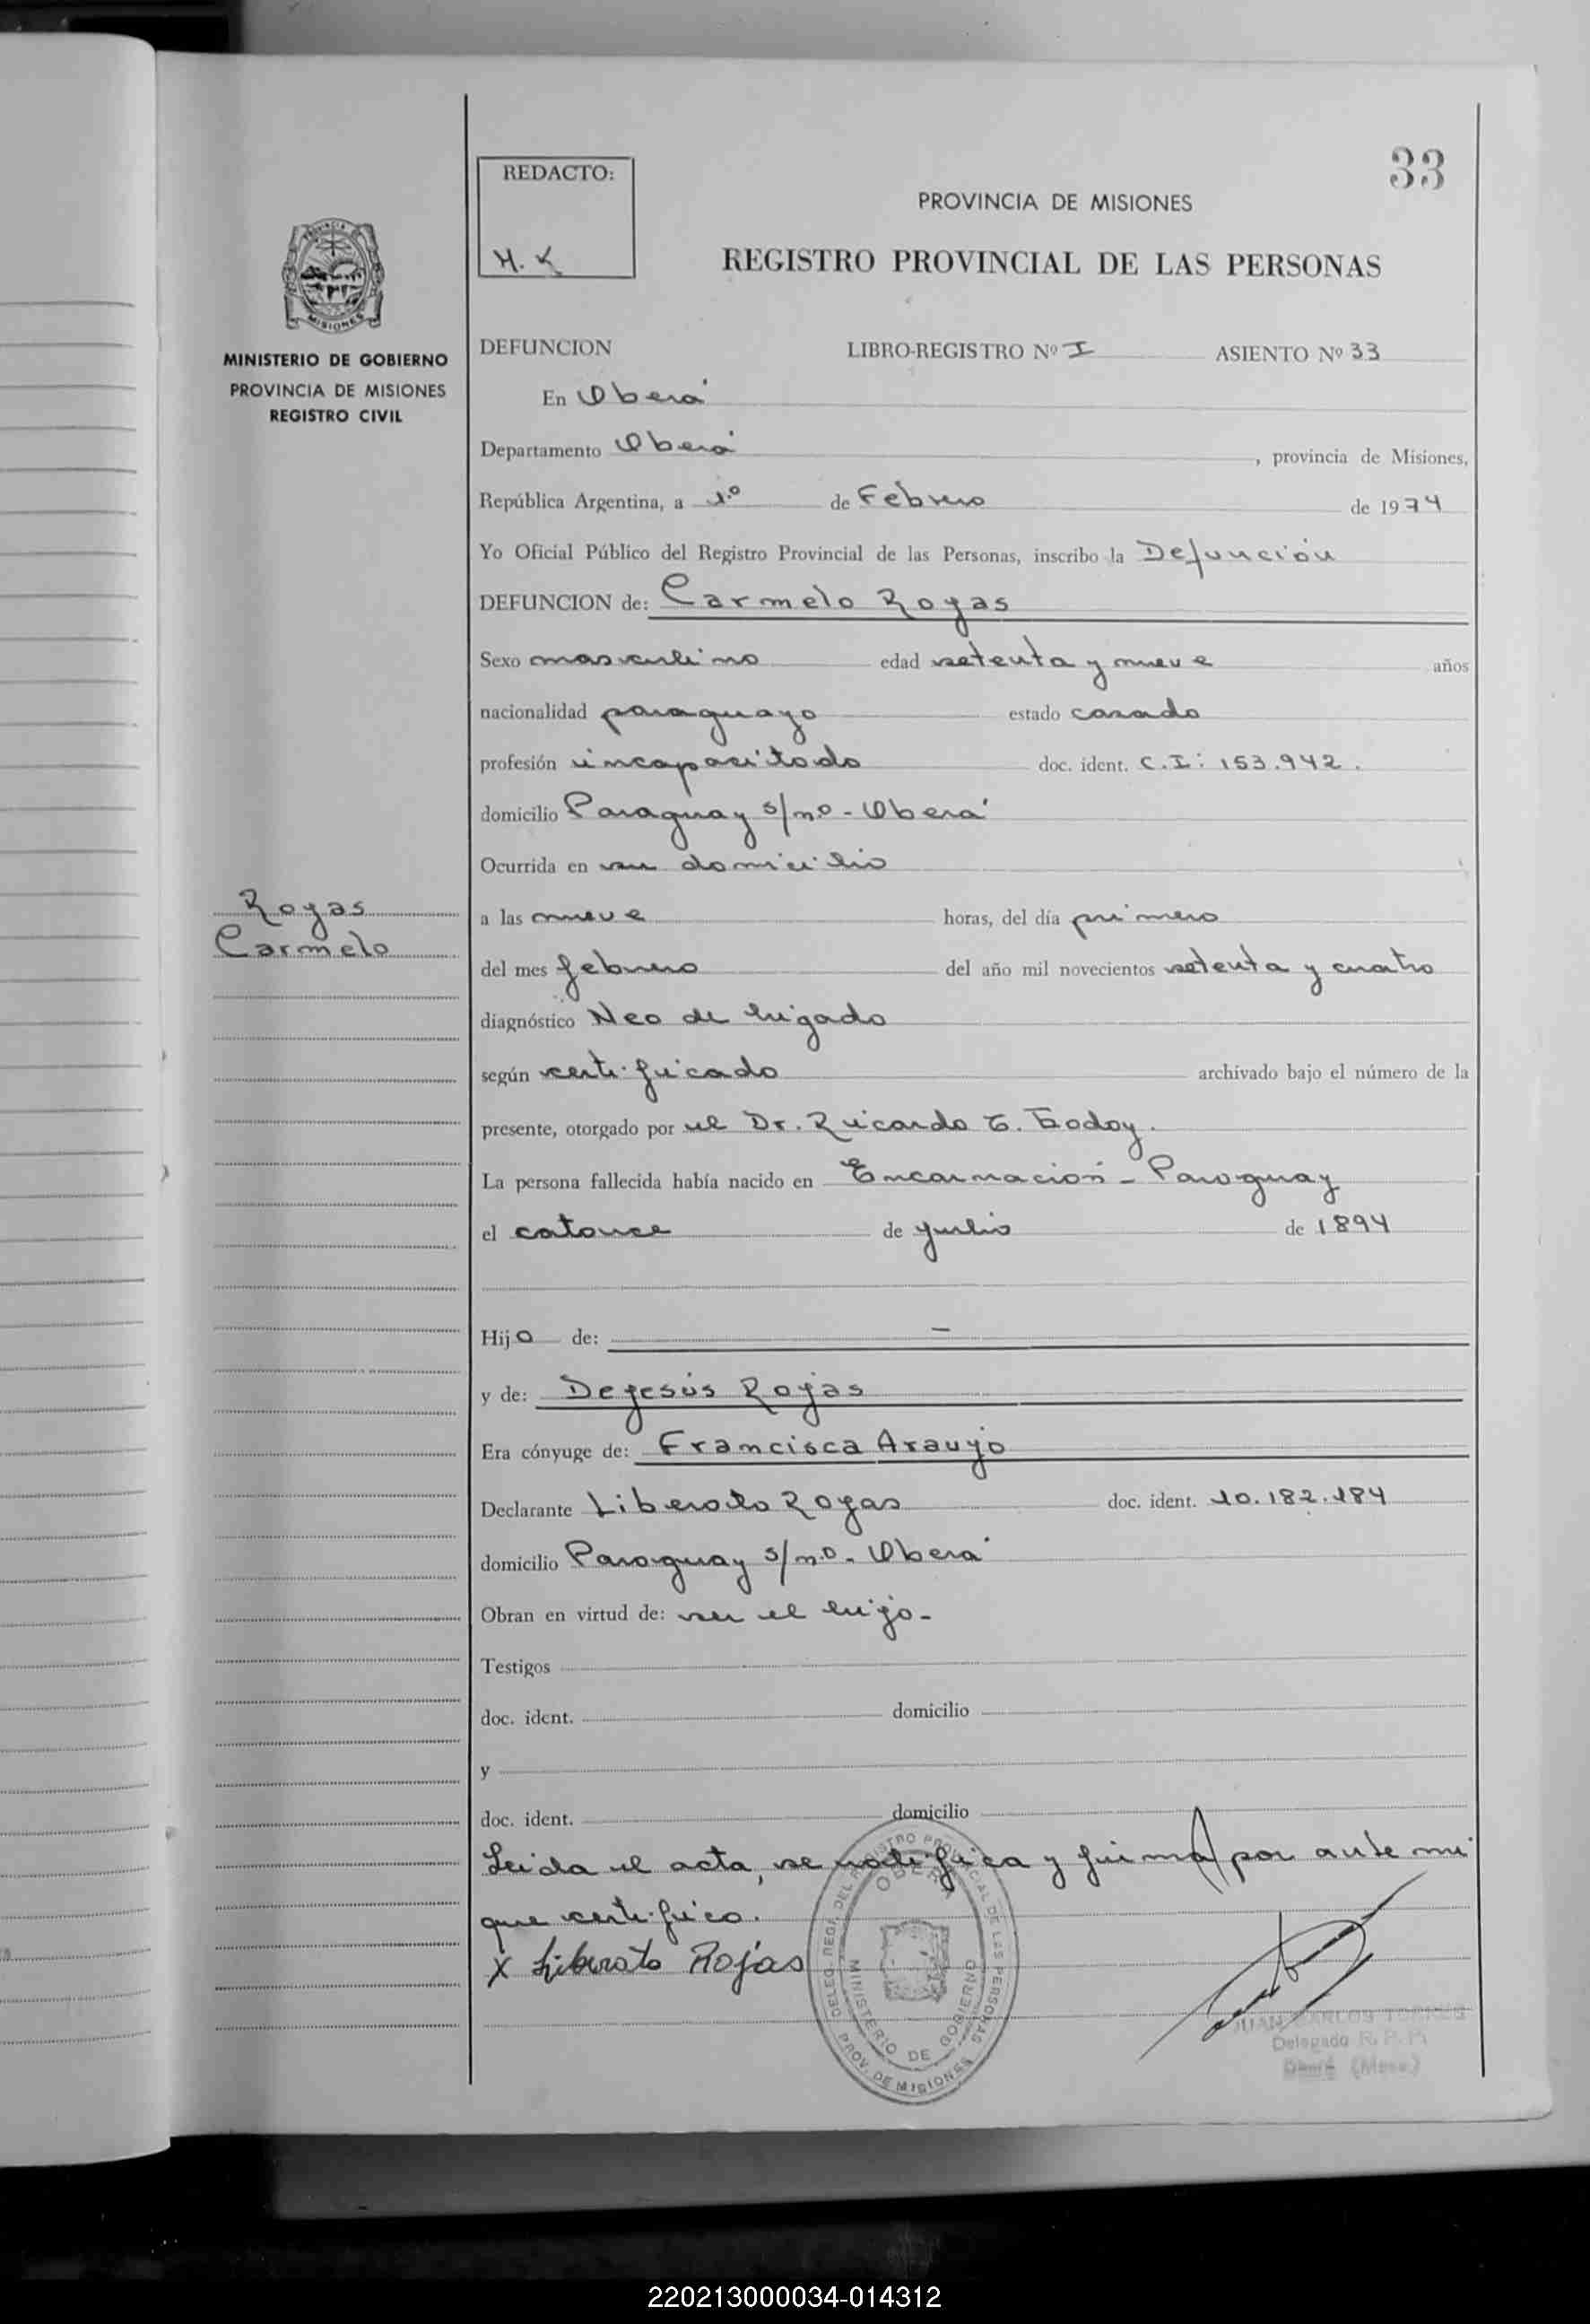 33
REDACTO:
H. K
PROVINCIA DE MISIONES
REGISTRO PROVINCIAL DE LAS PERSONAS
MISIONES
MINISTERIO DE GOBIERNO
PROVINCIA DE MISIONES
REGISTRO CIVIL
DEFUNCION LIBRO-REGISTRO Nº I ASIENTO Nº 33
En Oberá
Departamento Oberá, provincia de Misiones,
República Argentina, a 1º de Febrero de 1974
Yo Oficial Público del Registro Provincial de las Personas, inscribo la Defunción
DEFUNCION de: Carmelo Rojas
Sexo masculino edad setenta y nueve años
nacionalidad paraguayo estado casado
profesión incapacitado doc. ident. C.I: 153.942.
domicilio Paraguay s/nº - Oberá
Ocurrida en su domicilio
Rojas
Carmelo
a las nueve horas, del día primero
del mes febrero del año mil novecientos setenta y cuatro
diagnóstico Neo de higado
según certificado archivado bajo el número de la
presente, otorgado por el Dr. Ricardo E. Godoy.
La persona fallecida había nacido en Encarnación - Paraguay
el catorce de julio de 1894
Hijo de: -
y de: Dejesús Rojas
Era cónyuge de: Francisca Araujo
Declarante Liberato Rojas doc. ident. 10.182.184
domicilio Paraguay s/nº - Oberá
Obran en virtud de: ser el hijo-
Testigos
doc. ident. domicilio
y
doc. ident. domicilio
Leida el acta, se notifica y firma por ante mi
que certifico.
x Liberato Rojas
DELEG. REGI. DEL REGISTRO PROVINCIAL DE LAS PERSONAS
OBERA
MINISTERIO DE GOBIERNO
PROV. DE MISIONES
JUAN CARLOS TORRES
Delegado R. P. P.
Oberá (Mnes.)
220213000034-014312